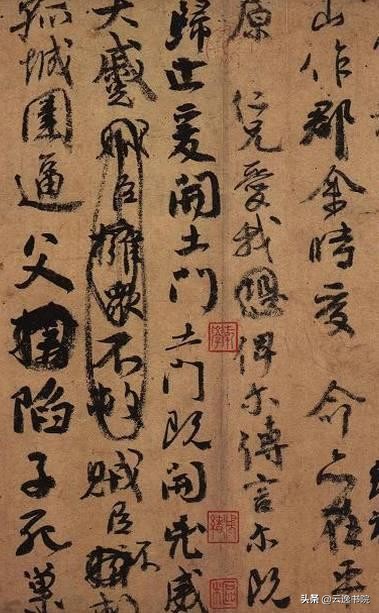 山作郡余時受命亦在平
原仁兄愛我恐俾尔傳言尔既
歸止爰開土門土門既開兇威
大蹙賊臣擁眾不救賊臣不
孤城圍逼父陷子死巢
头条 @云逸书院